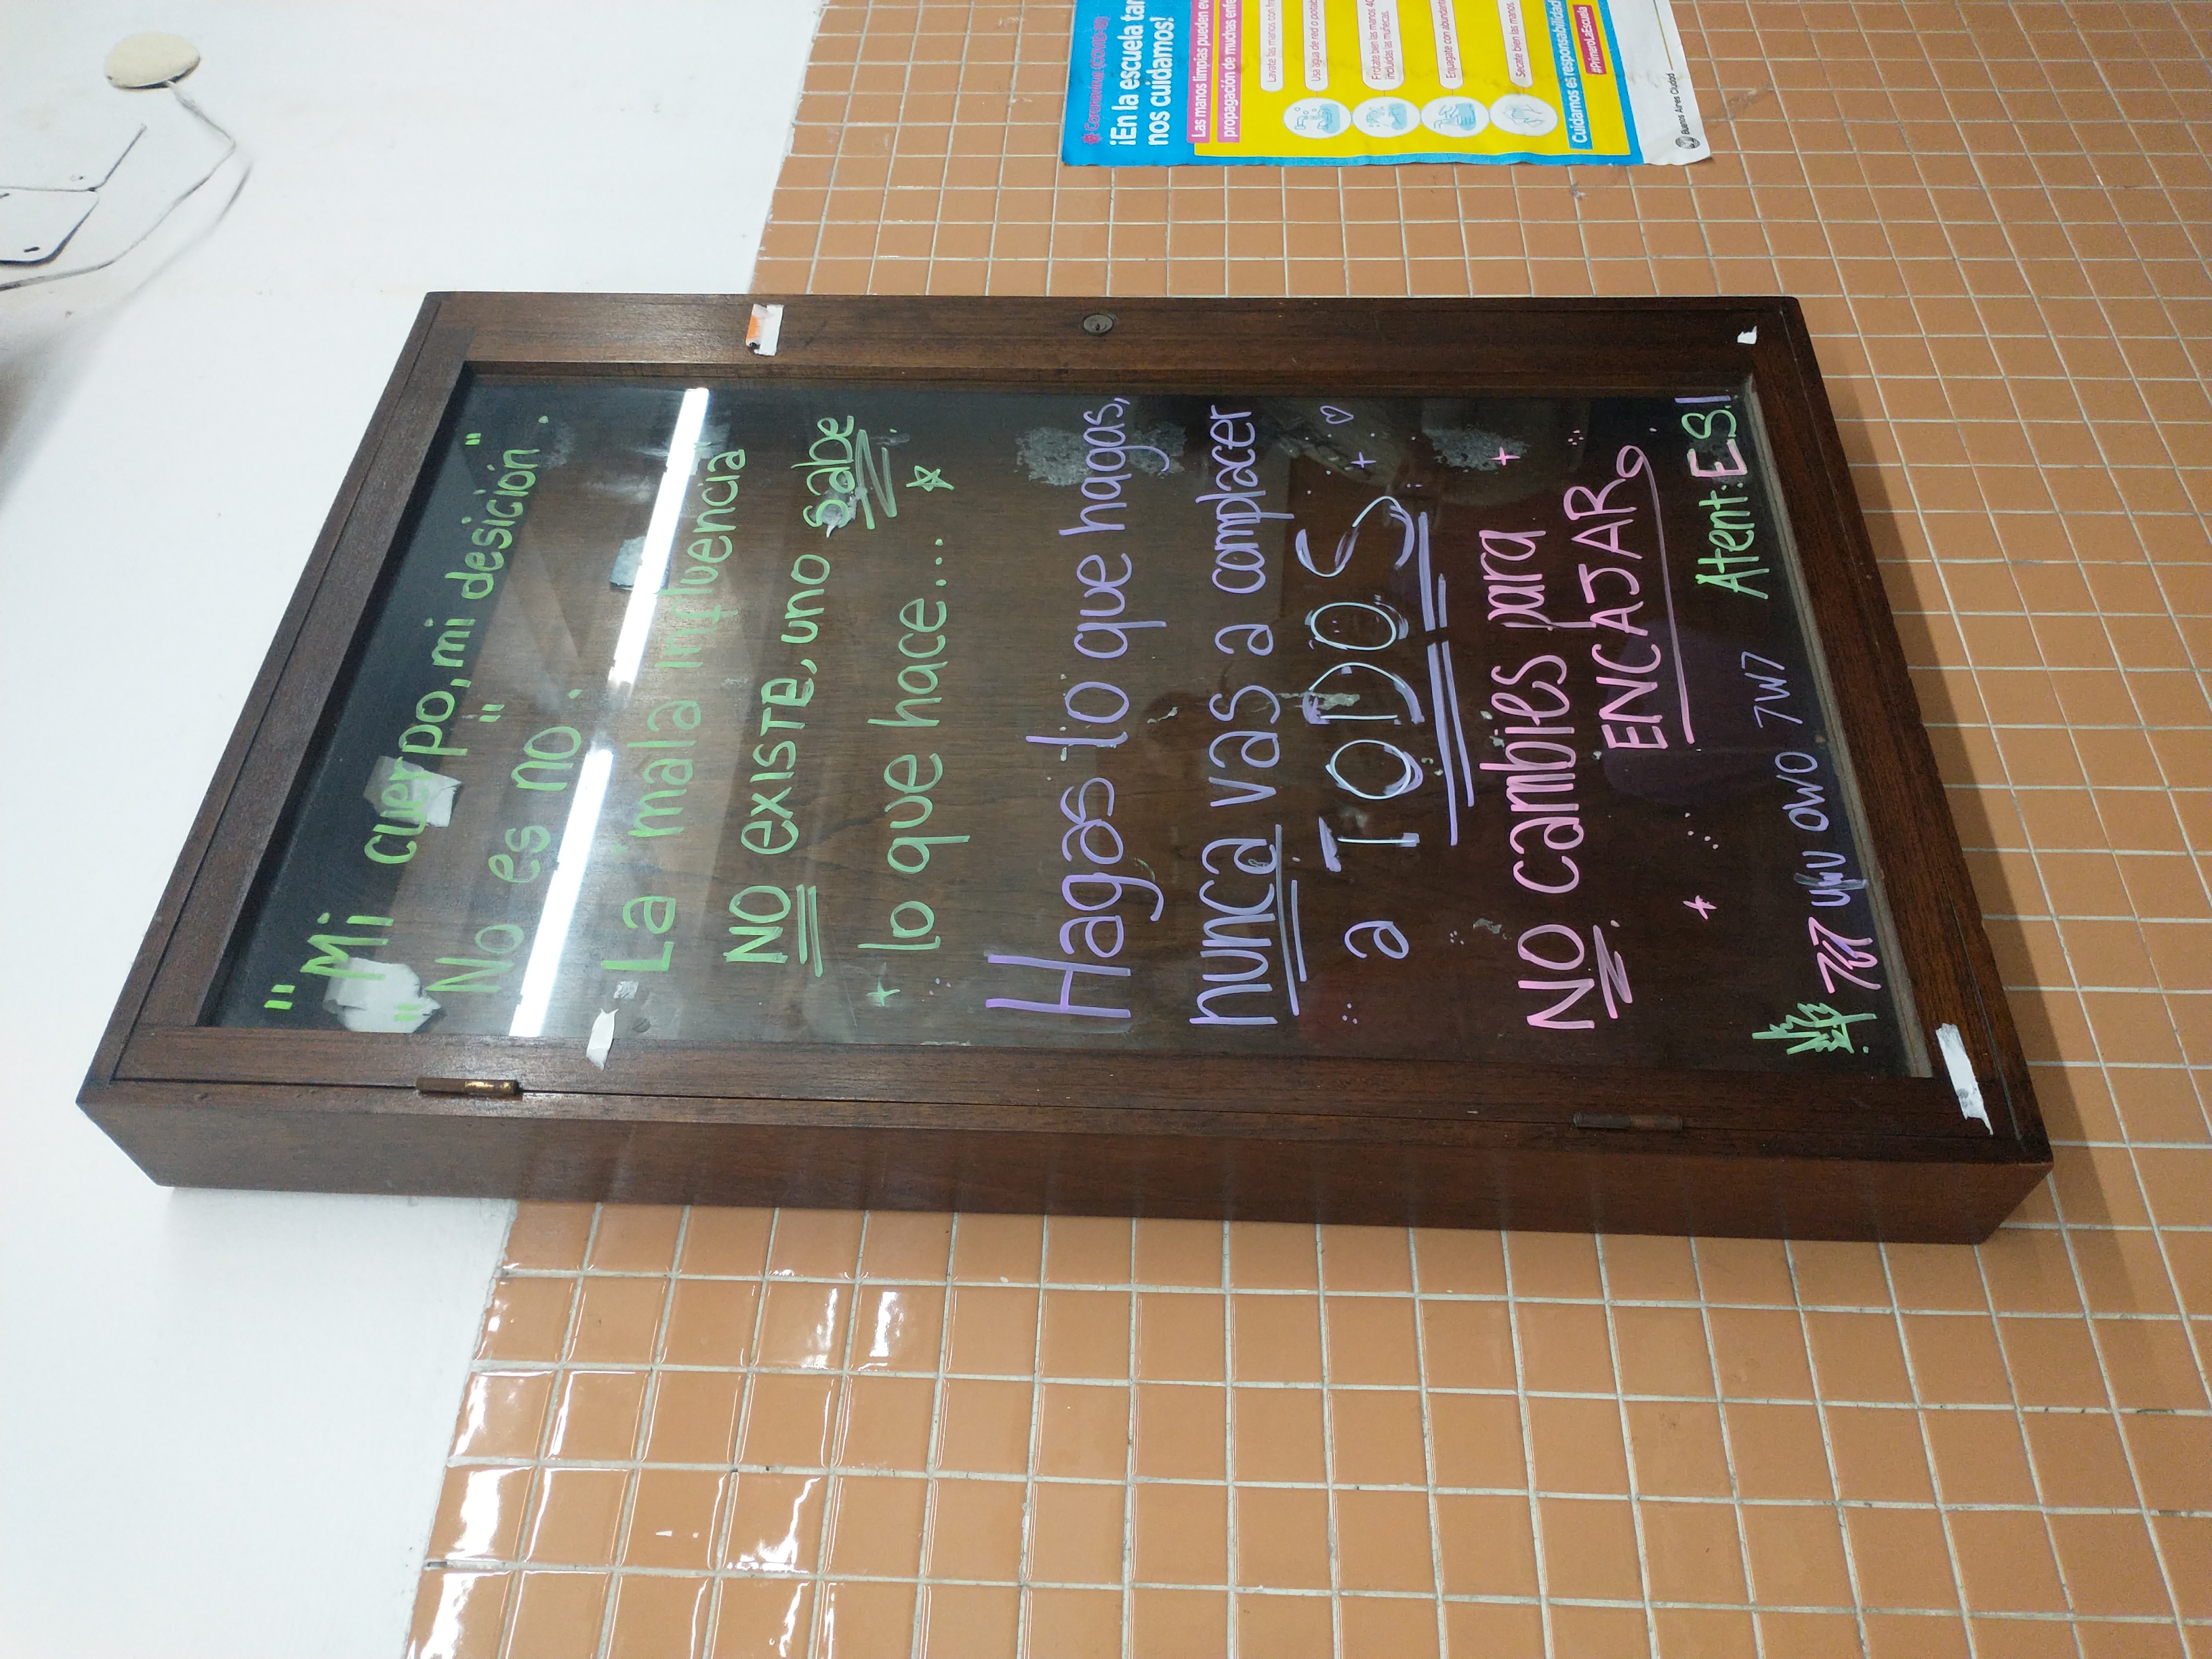 "Mi cuerpo, mi desición"
"No es no".
La mala influencia
NO existe, uno sabe
lo que hace...
Hagas lo que hagas,
nunca vas a complacer
a TODOS
NO cambies para
ENCAJAR
Atent: E.S.I
7u7 uwu OWO 7W7
Coronavirus (COVID-19)
¡En la escuela
nos cuidamos!
Las manos limpias pueden
propagación de muchas
Lavate las manos con
Usa agua de red o
Frotate bien las manos
incluidas las muñecas.
Enjuagate con
Secate bien las manos.
Cuidarnos es responsabilidad
#PrimeroLaEscuela
Buenos Aires Ciudad